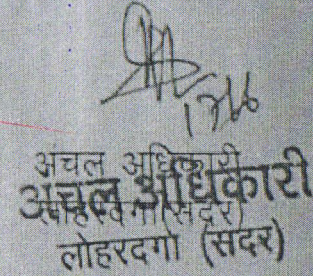 अंचल अधिकारी
अंचल अधिकारी
लोहरदगा (सदर)
लोहरदगा (सदर)